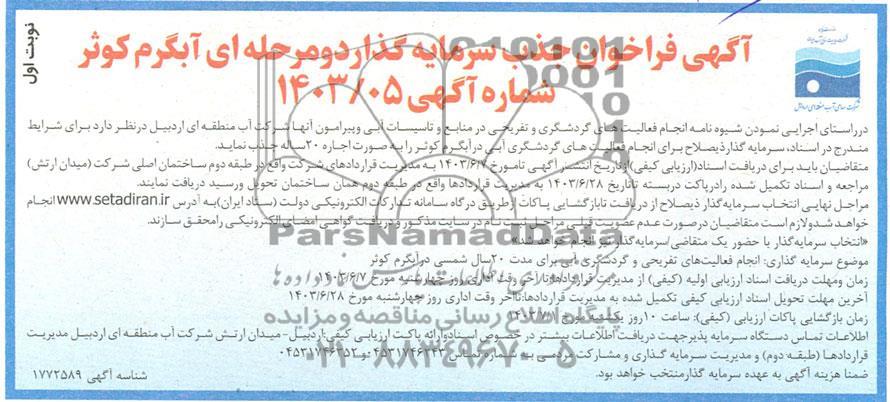 نوبت اول
آگهی فراخوان جذب سرمایه گذار دو مرحله ای آبگرم کوثر
شماره آگهی ۱۴۰۳/۰۵
شرکت سهامی آب منطقه ای اردبیل
درراستای اجرایی نمودن شیوه نامه انجام فعالیت های گردشگری و تفریحی در منابع و تاسیسات آبی وپیرامون آنها شرکت آب منطقه ای اردبیل درنظر دارد برای شرایط
مندرج در اسناد، سرمایه گذارذیصلاح برای انجام فعالیت های گردشگری آبی در آبگرم کوثر را به صورت اجاره ۲۰ساله جذب نماید.
متقاضیان باید برای دریافت اسناد(ارزیابی کیفی)ازتاریخ انتشار آگهی تامورخ ۱۴۰۳/۶/۷ به مدیریت قراردادهای شرکت واقع در طبقه دوم ساختمان اصلی شرکت (میدان ارتش)
مراجعه و اسناد تکمیل شده رادرپاکت دربسته تاتاریخ ۱۴۰۳/۶/۲۸ به مدیریت قراردادها واقع در طبقه دوم همان ساختمان تحویل ورسید دریافت نمایند.
مراحل نهایی انتخاب سرمایه‌گذار ذیصلاح از دریافت تابازگشایی پاکات ازطریق درگاه سامانه تدارکات الکترونیکی دولت (ستاد ایران)به آدرس www.setadiran.ir انجام
خواهد شدولازم است متقاضیان درصورت عدم عضویت قبلی مراحل ثبت نام در سایت مذکور و دریافت گواهی امضای الکترونیکی رامحقق سازند.
«انتخاب سرمایه‌گذار با حضور یک متقاضی/سرمایه‌گذار نیز انجام خواهد شد»
موضوع سرمایه گذاری: انجام فعالیت‌های تفریحی و گردشگری آبی برای مدت ۲۰سال شمسی درآبگرم کوثر
زمان ومهلت دریافت اسناد ارزیابی اولیه (کیفی) از مدیریت قراردادها:تا آخر وقت اداری روز چهارشنبه مورخ ۱۴۰۳/۶/۷
آخرین مهلت تحویل اسناد ارزیابی کیفی تکمیل شده به مدیریت قراردادها:تاآخر وقت اداری روز چهارشنبه مورخ ۱۴۰۳/۶/۲۸
زمان بازگشایی پاکات ارزیابی (کیفی): ساعت ۱۰روز یکشنبه مورخ ۱۴۰۳/۷/۱
اطلاعات تماس دستگاه سرمایه پذیرجهت دریافت اطلاعات بیشتر در خصوص اسنادوارائه پاکت ارزیابی کیفی:اردبیل-میدان ارتش شرکت آب منطقه ای اردبیل مدیریت
قراردادها (طبقه دوم) و مدیریت سرمایه گذاری و مشارکت مردمی به شماره تماس ۰۴۵۳۱۷۴۶۳۴۳ و ۰۴۵۳۱۷۴۶۳۵۲
ضمنا هزینه آگهی به عهده سرمایه گذارمنتخب خواهد بود.
شناسه آگهی ۱۷۷۲۵۸۹
ParsNamadData
پایگاه اطلاع رسانی مناقصه و مزایده
۰۲۱-۸۸۳۴۹۶۷۰-۵